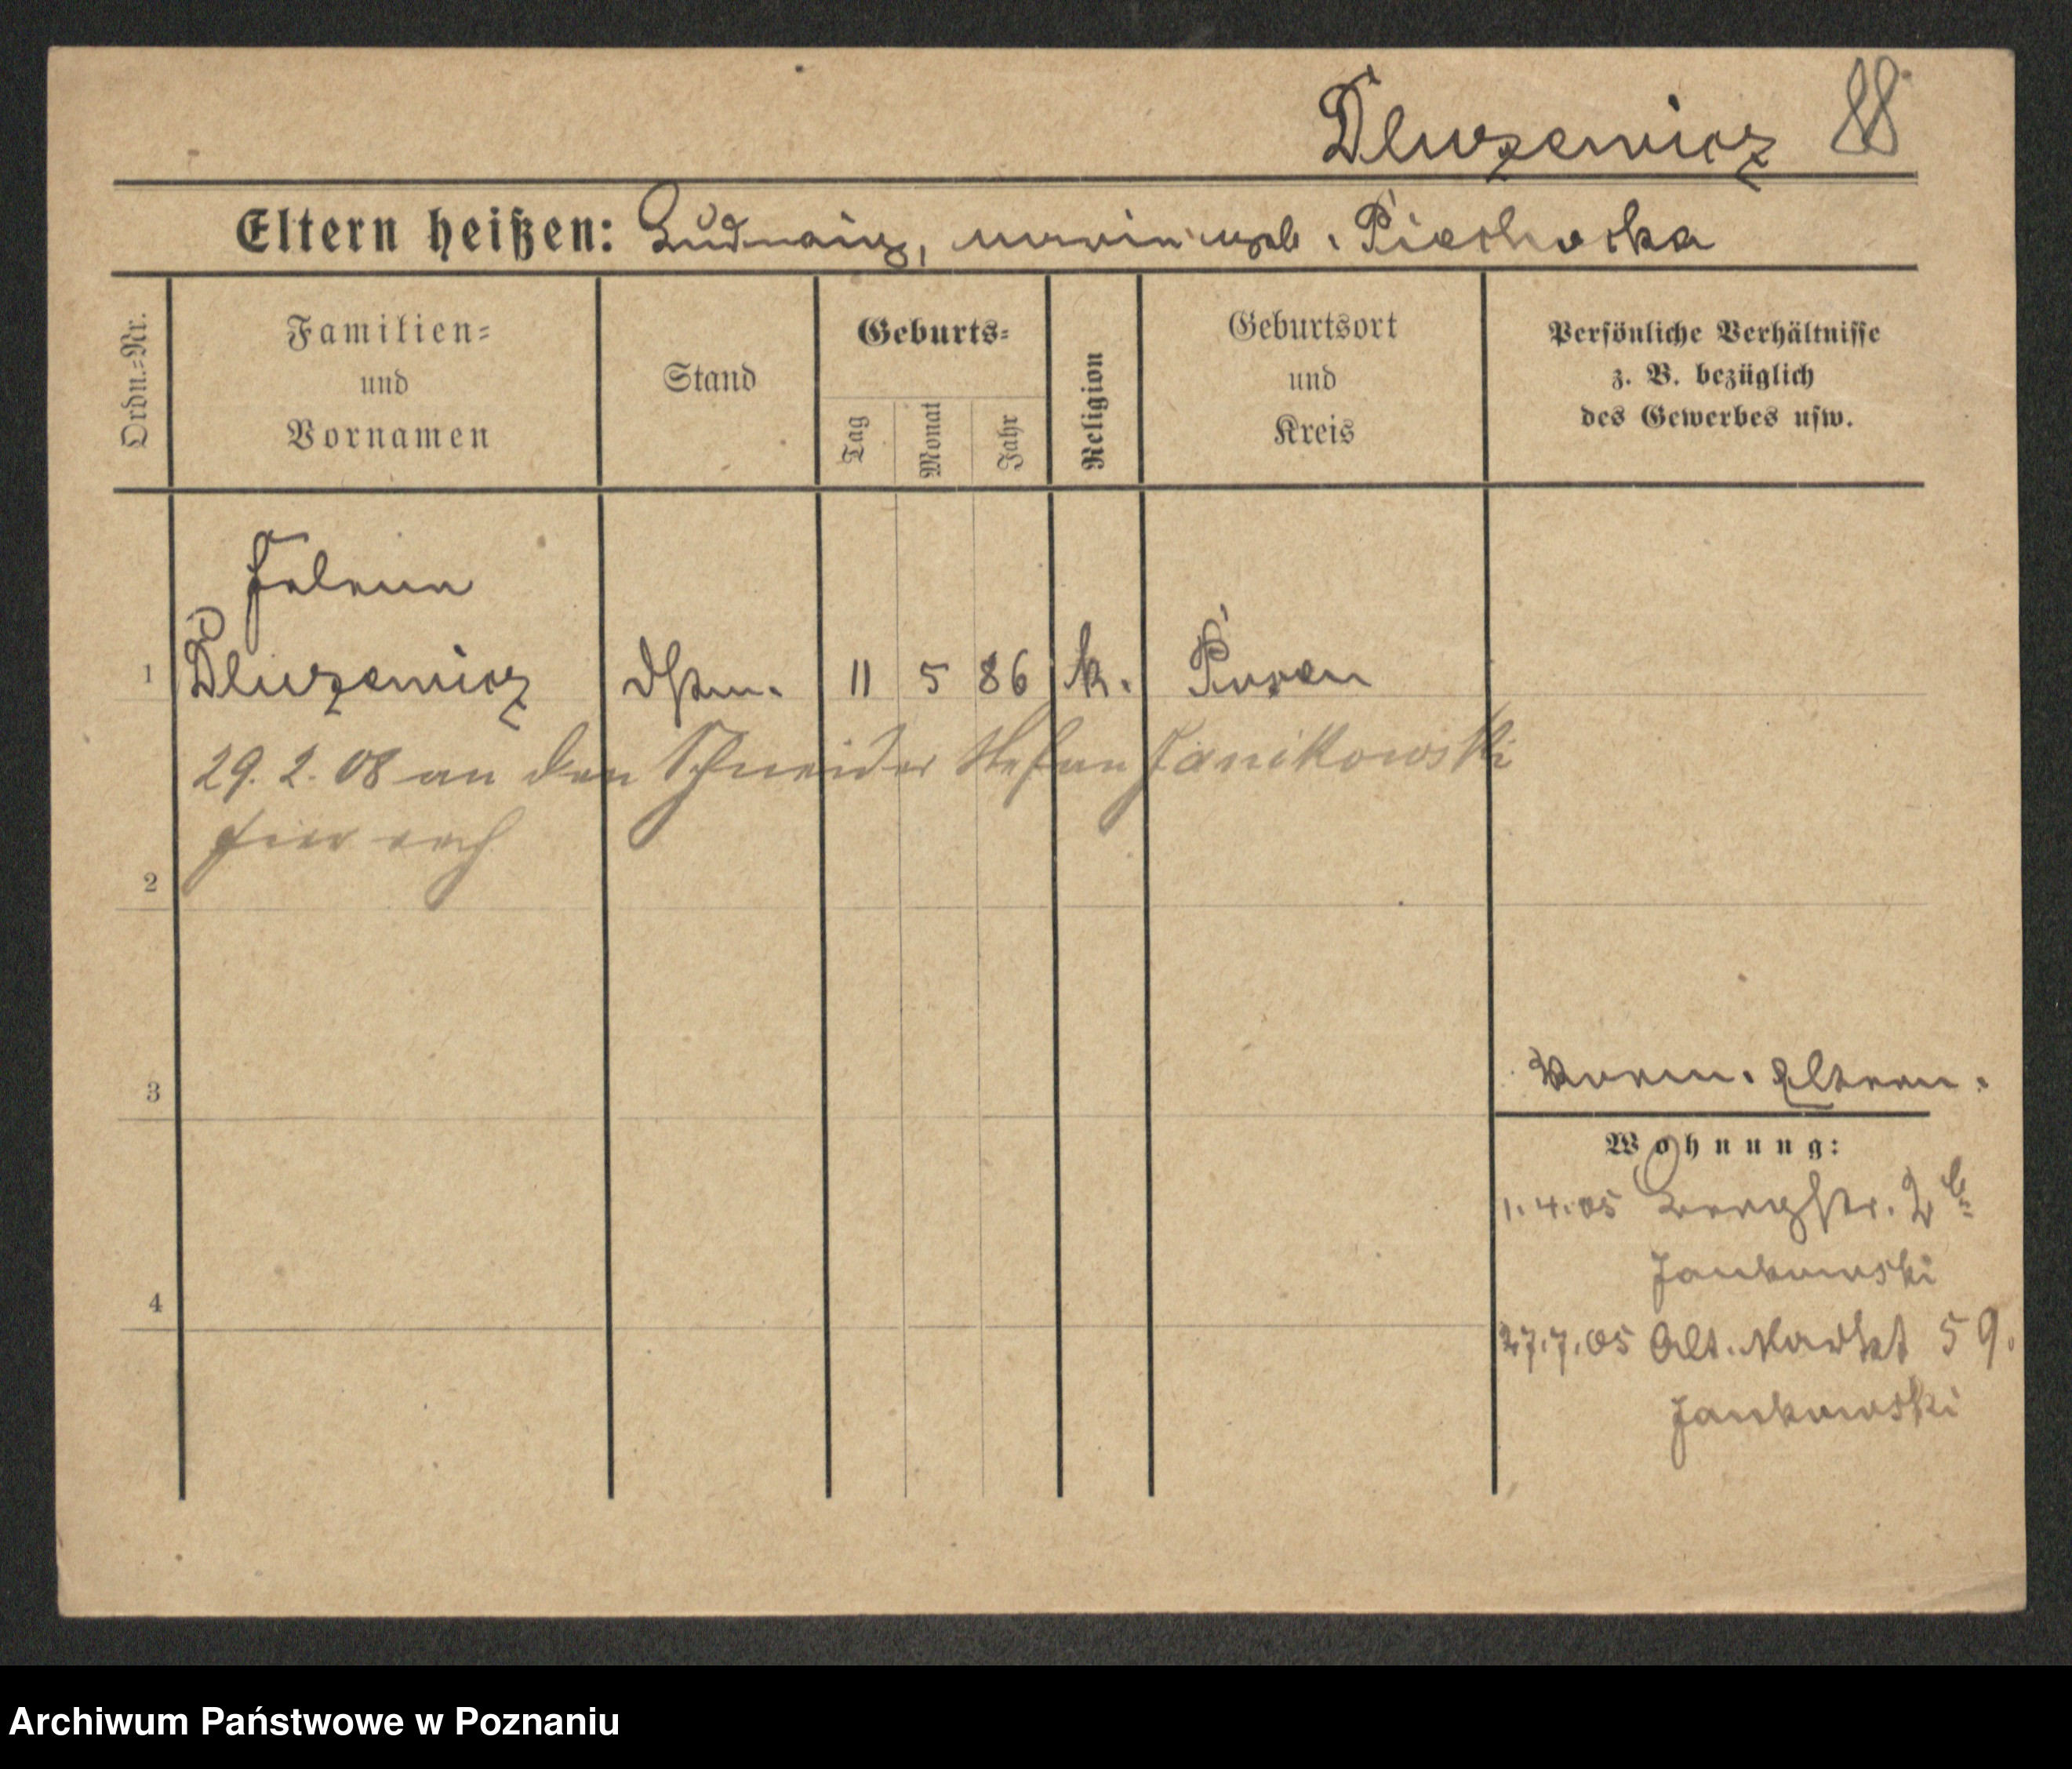 Dluzewicz 88
Eltern heißen: Ludwig, Maria geb. Piechocka
Ordn.-Nr.
Familien-
und
Vornamen
Stand
Geburts-
Tag
Monat
Jahr
Religion
Geburtsort
und
Kreis
Persönliche Verhältnisse
z. B. bezüglich
des Gewerbes usw.
Helena
1 Dluzewicz 11 5 86 k. Posen
29.2.08 an den Schneider Stefan Janikowski
hier verh
2
3
Vorm. Eltern.
Wohnung:
1.4.05 Bergstr. 2b
Jankowski
4
27.7.05 Alt. Markt 59.
Jankowski
Archiwum Państwowe w Poznaniu